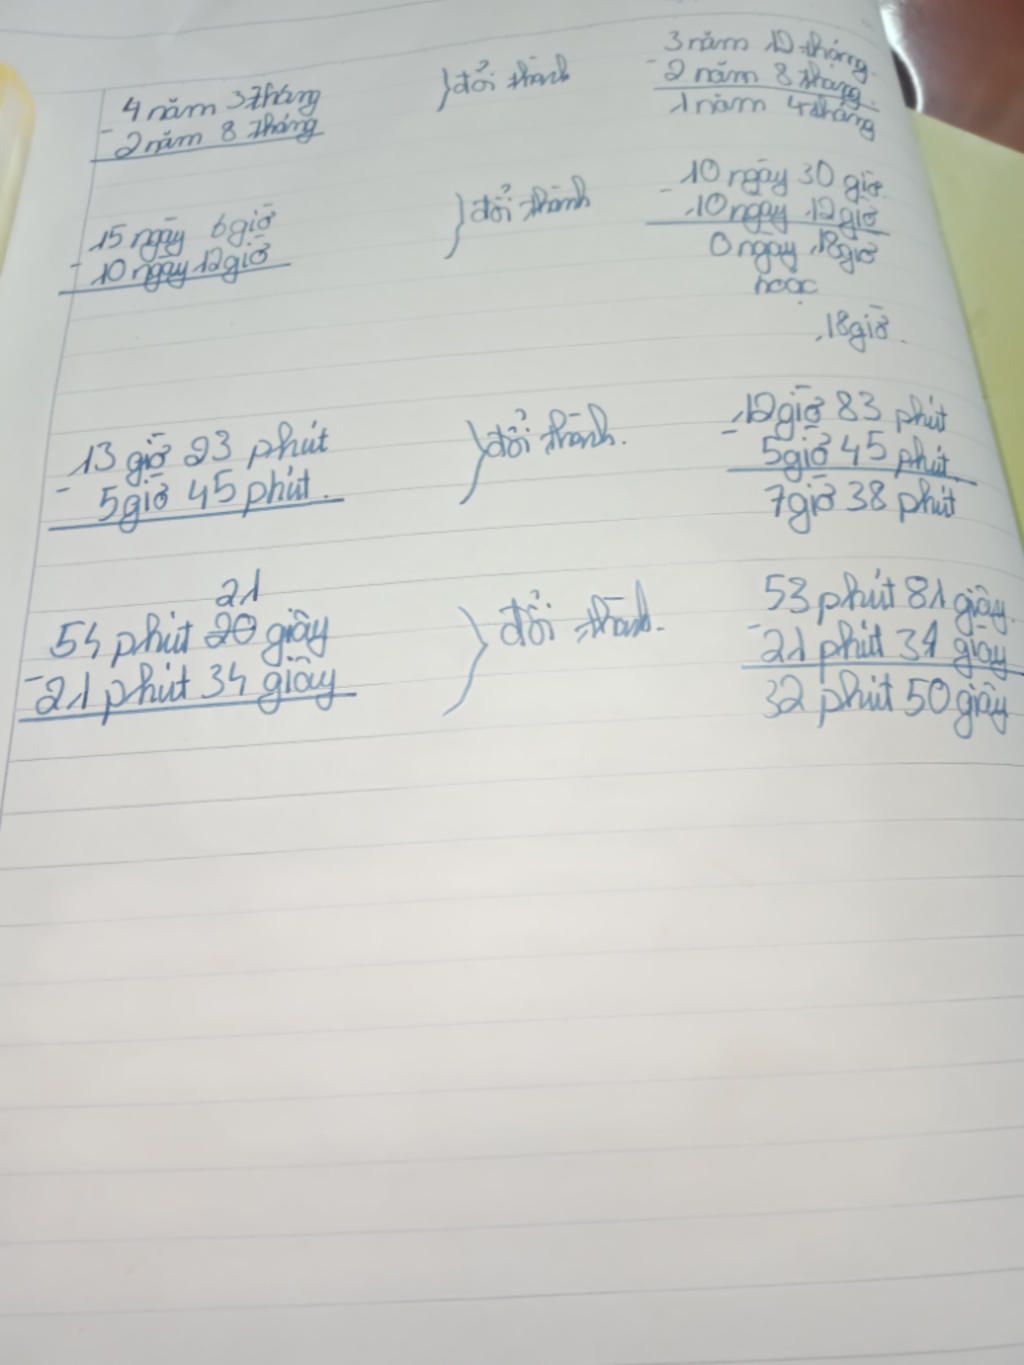 4 năm 3 tháng
- 2 năm 8 tháng
} đổi thành
3 năm 12 tháng
- 2 năm 8 tháng
1 năm 4 tháng
15 ngày 6 giờ
- 10 ngày 12 giờ
} đổi thành
10 ngày 30 giờ
- 10 ngày 12 giờ
0 ngày 18 giờ
hoặc
18 giờ.
13 giờ 23 phút
- 5 giờ 45 phút.
} đổi thành.
12 giờ 83 phút
- 5 giờ 45 phút.
7 giờ 38 phút
21
54 phút 20 giây
- 21 phút 34 giây
} đổi thành.
53 phút 81 giây
- 21 phút 31 giây
32 phút 50 giây